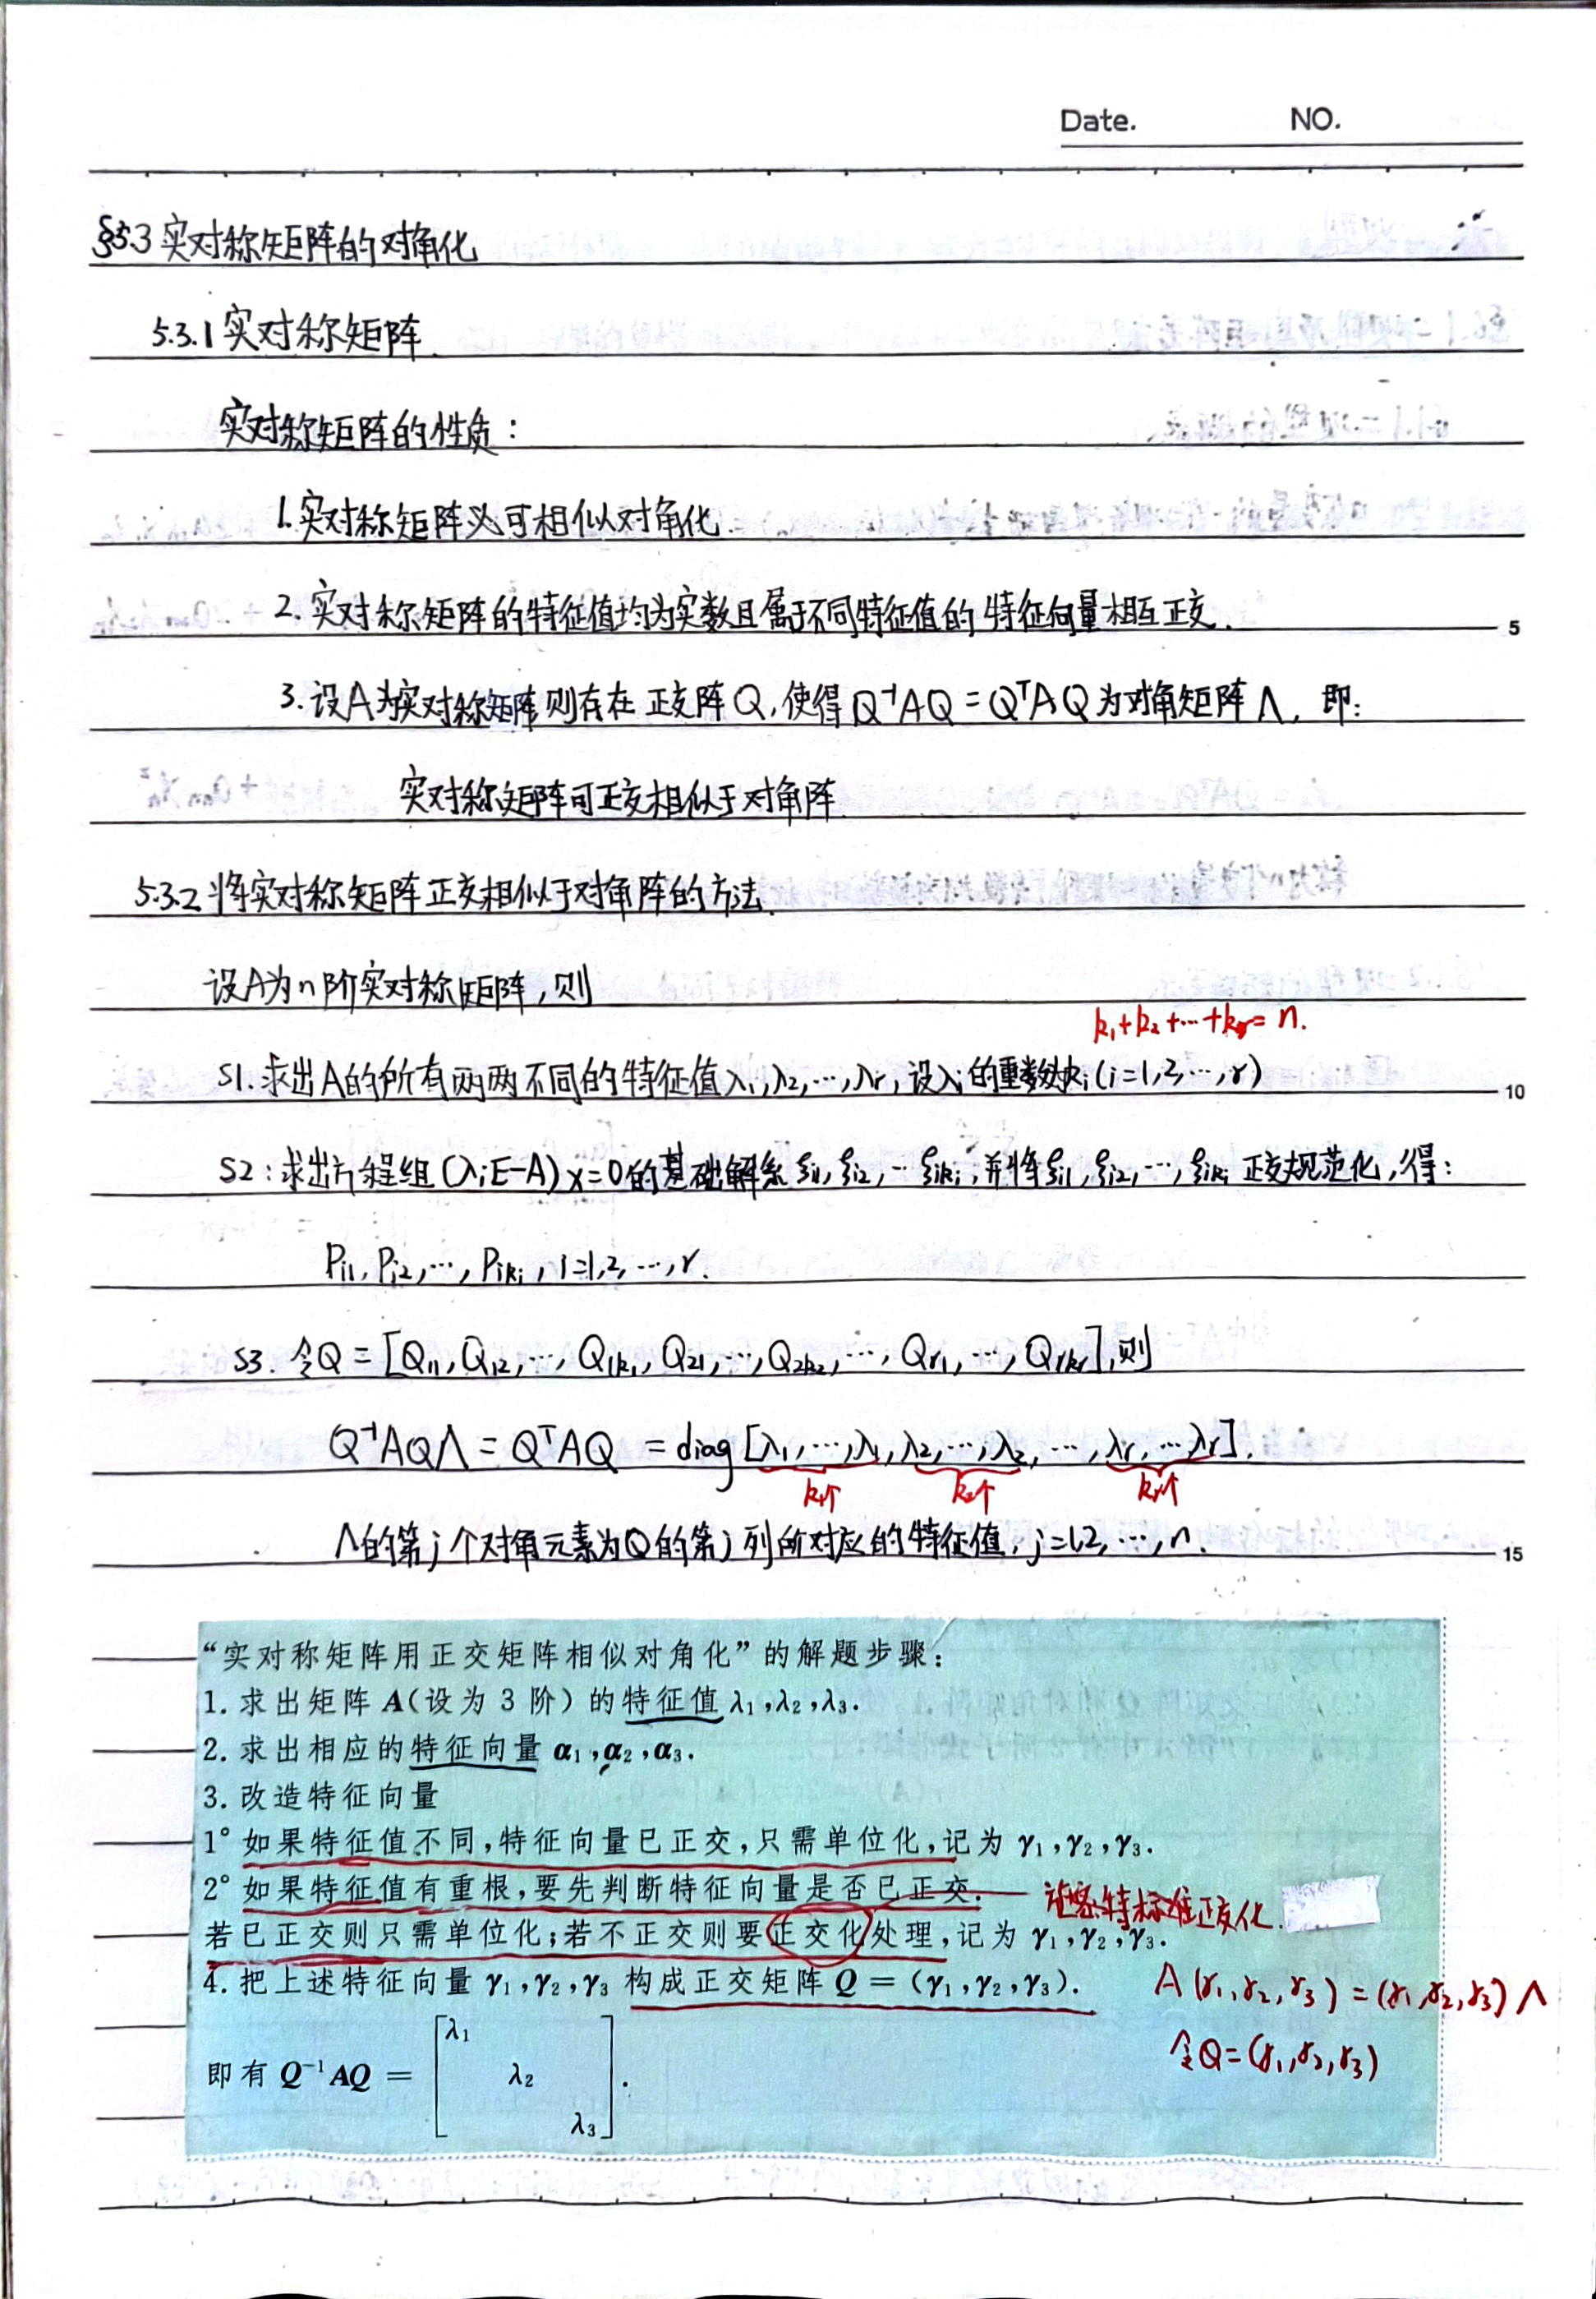 Date. NO.
§5.3 实对称矩阵的对角化
5.3.1 实对称矩阵
实对称矩阵的性质:
1.实对称矩阵必可相似对角化.
2.实对称矩阵的特征值均为实数且属于不同特征值的特征向量相互正交.
5
3.设A为实对称矩阵则存在正交阵Q,使得Q⁻¹AQ=QᵀAQ为对角矩阵Λ, 即:
实对称矩阵可正交相似于对角阵
5.3.2 将实对称矩阵正交相似于对角阵的方法.
设A为n阶实对称矩阵,则
k₁+k₂+…+kᵣ=n.
S1.求出A的所有两两不同的特征值λ₁,λ₂,…,λr,设λi的重数为ki(i=1,2,…,r)
10
S2:求出方程组(λiE-A)x=0的基础解系ξi1,ξi2,…ξiki,并将ξi1,ξi2,…,ξiki正交规范化,得:
Pi1,Pi2,…,Piki,i=1,2,…,r.
S3. 令Q=[Q11,Q12,…,Q1k₁,Q21,…,Q2k₂,…,Qr1,…,Qrkr],则
Q⁻¹AQΛ=QᵀAQ=diag[λ₁,…,λ₁,λ₂,…,λ₂,…,λr,…λr].
k₁个 k₂个 kr个
Λ的第j个对角元素为Q的第j列所对应的特征值,j=1,2,…,n.
15
“实对称矩阵用正交矩阵相似对角化”的解题步骤:
1. 求出矩阵 A(设为 3 阶)的特征值 λ₁,λ₂,λ₃.
2. 求出相应的特征向量 α₁,α₂,α₃.
3. 改造特征向量
1° 如果特征值不同,特征向量已正交,只需单位化,记为 γ₁,γ₂,γ₃.
2° 如果特征值有重根,要先判断特征向量是否已正交.
标准正交化.
若已正交则只需单位化;若不正交则要正交化处理,记为 γ₁,γ₂,γ₃.
4. 把上述特征向量 γ₁,γ₂,γ₃ 构成正交矩阵 Q = (γ₁,γ₂,γ₃).
A(γ₁,γ₂,γ₃)=(γ₁,γ₂,γ₃)Λ
令Q=(γ₁,γ₂,γ₃)
λ₁
即有 Q⁻¹AQ = [ λ₂ ].
λ₃